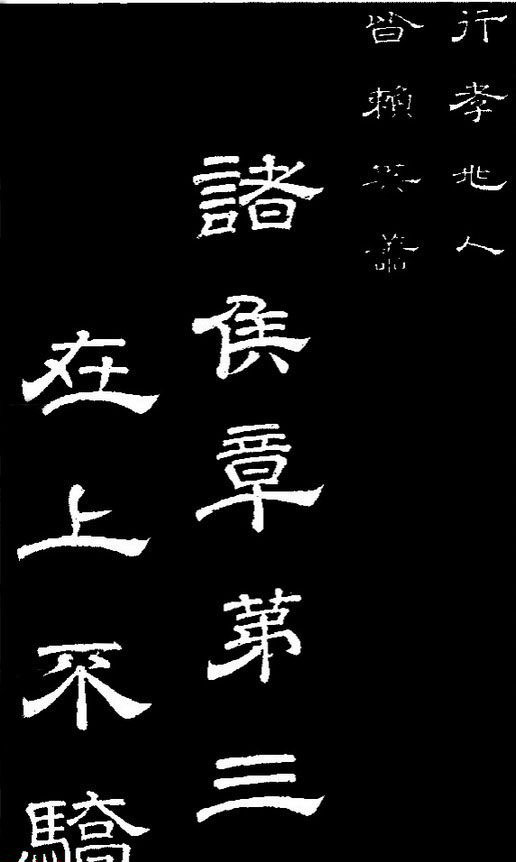 行孝兆人
皆賴其譱
諸侯章第三
在上不驕